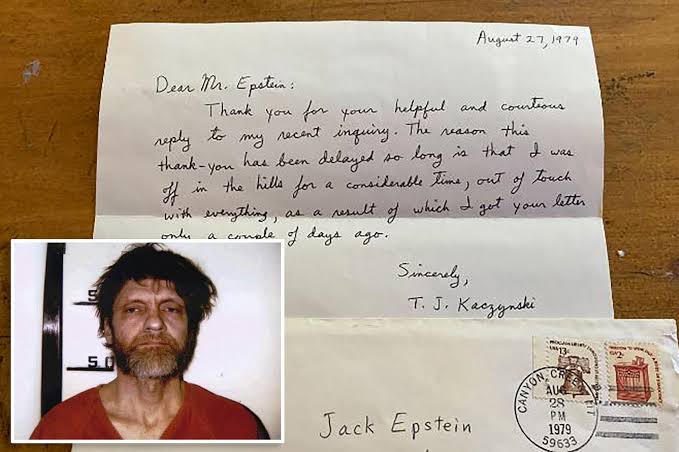 August 27, 1979
Dear Mr. Epstein:
Thank you for your helpful and courteous
reply to my recent inquiry. The reason this
thank-you has been delayed so long is that I was
off in the hills for a considerable time, out of touch
with everything, as a result of which I got your letter
only a couple of days ago.
Sincerely,
T. J. Kaczynski
5
5 0
USA 13c
CANYON CREEK
AUG
28
PM
1979
59633
Jack Epstein